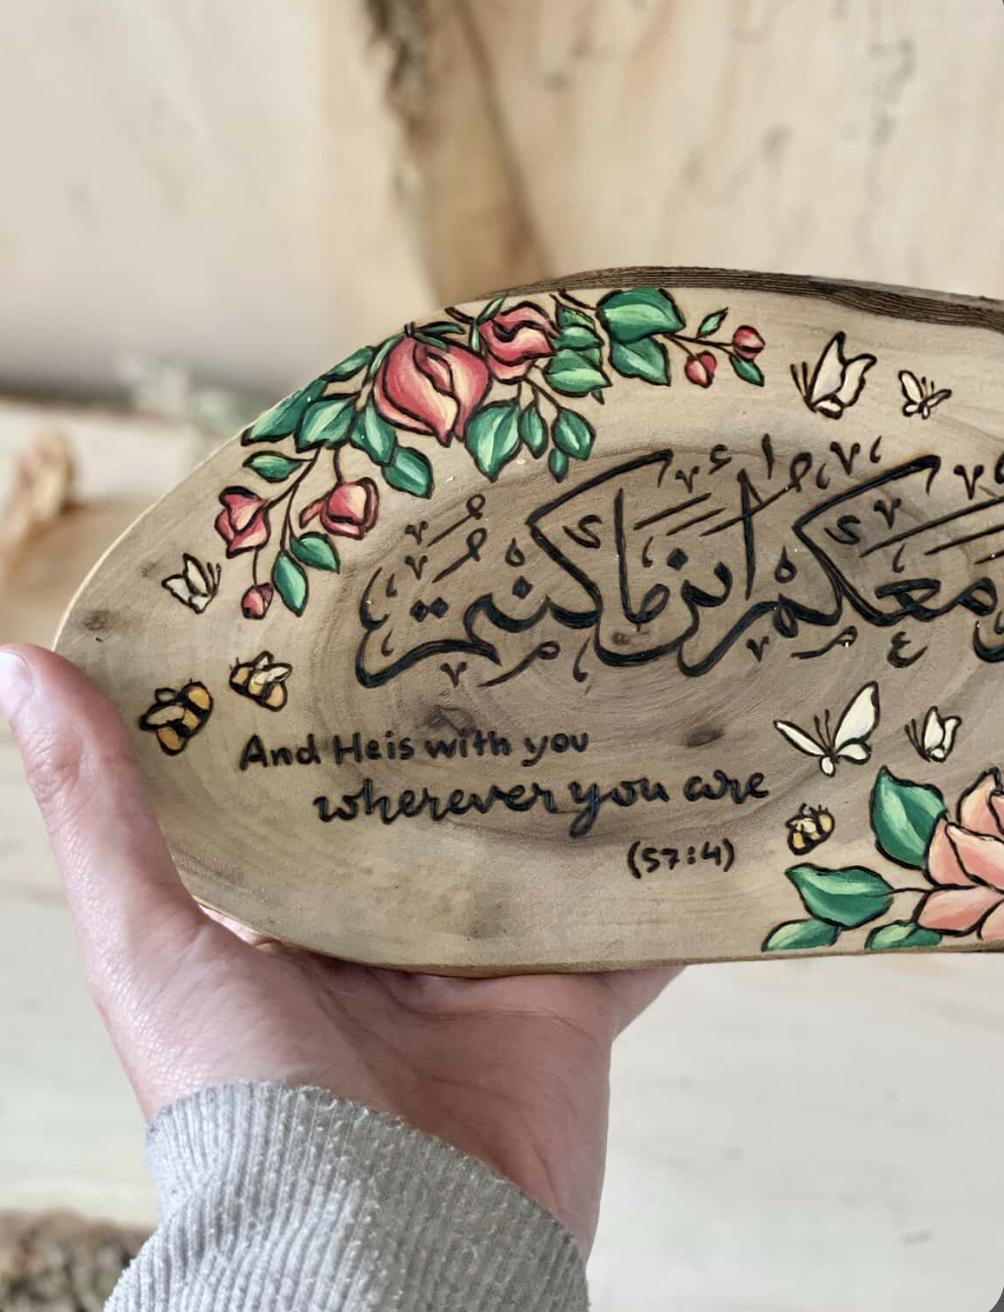 معكم أين ما كنتم
And He is with you
wherever you are
(57:4)